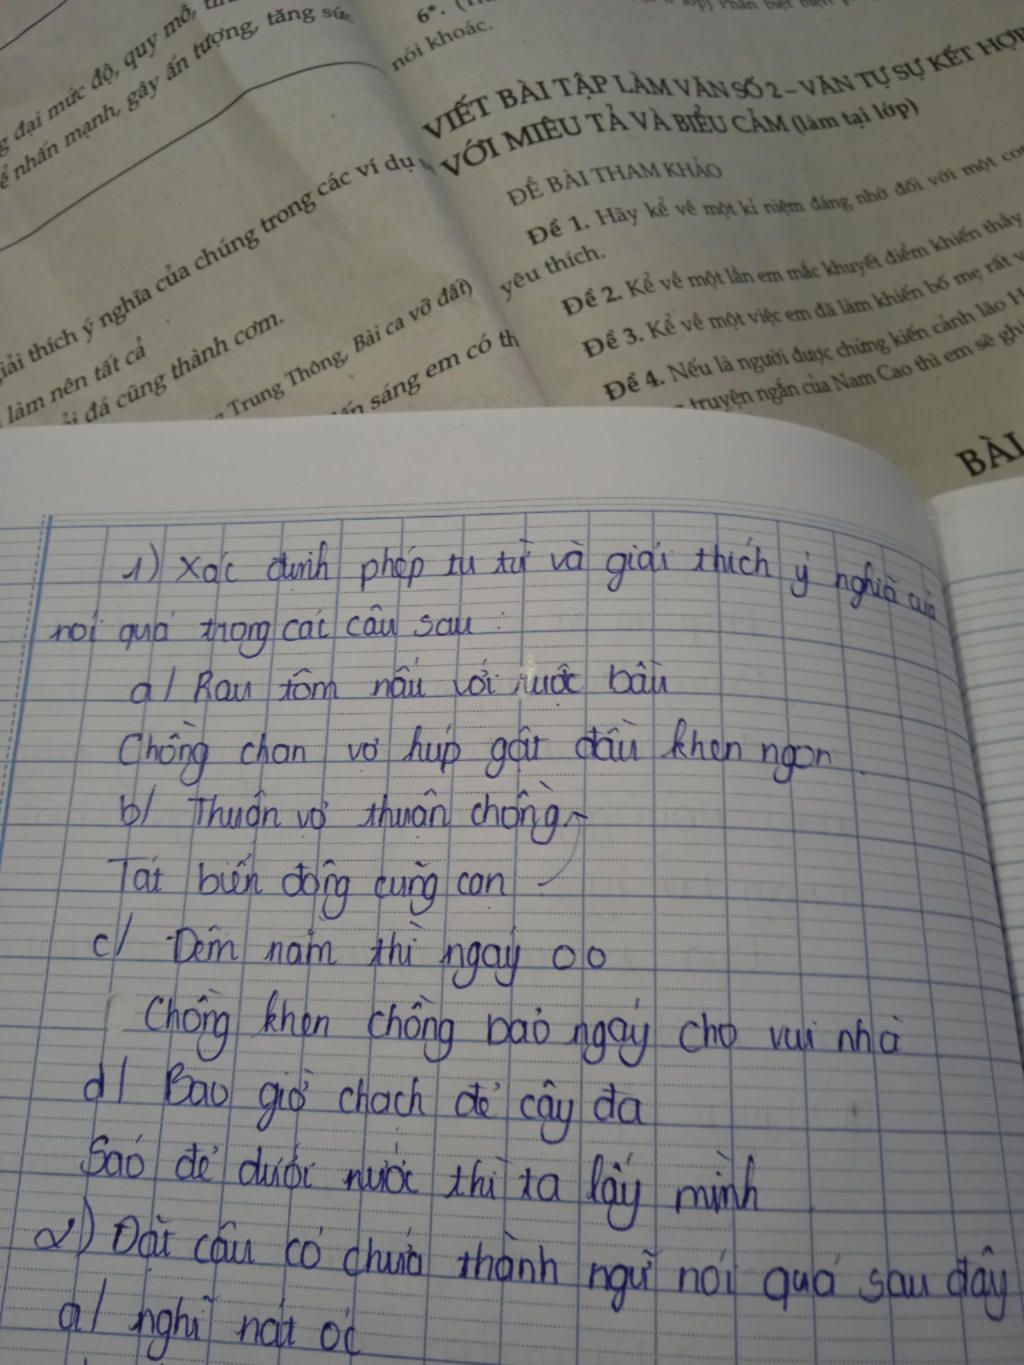 g đại mức độ, quy mô,
ể nhấn mạnh, gây ấn tượng, tăng sức
giải thích ý nghĩa của chúng trong các ví dụ
làm nên tất cả
đá cũng thành cơm.
Trung Thông, Bài ca vỡ đất)
sáng em có th
6*.
nói khoác.
VIẾT BÀI TẬP LÀM VĂN SỐ 2 – VĂN TỰ SỰ KẾT HỢP
VỚI MIÊU TẢ VÀ BIỂU CẢM (làm tại lớp)
ĐỀ BÀI THAM KHẢO
Đề 1. Hãy kể về một kỉ niệm đáng nhớ đối với một con
yêu thích.
Đề 2. Kể về một lần em mắc khuyết điểm khiến thầy
Đề 3. Kể về một việc em đã làm khiến bố mẹ rất v
Đề 4. Nếu là người được chứng kiến cảnh lão H
truyện ngắn của Nam Cao thì em sẽ ghi
BÀI
1) Xác định phép tu từ và giải thích ý nghĩa của
nói quá trong các câu sau :
a/ Rau tôm nấu với ruột bầu
Chồng chan vợ húp gật đầu khen ngon.
b/ Thuận vợ thuận chồng
Tát biển đông cũng cạn
c/ Đêm nằm thì ngáy o o
Chồng khen chồng bảo ngáy cho vui nhà
d/ Bao giờ chạch đẻ cây đa
Sáo đẻ dưới nước thì ta lấy mình
2) Đặt câu có chứa thành ngữ nói quá sau đây
a/ nghĩ nát óc